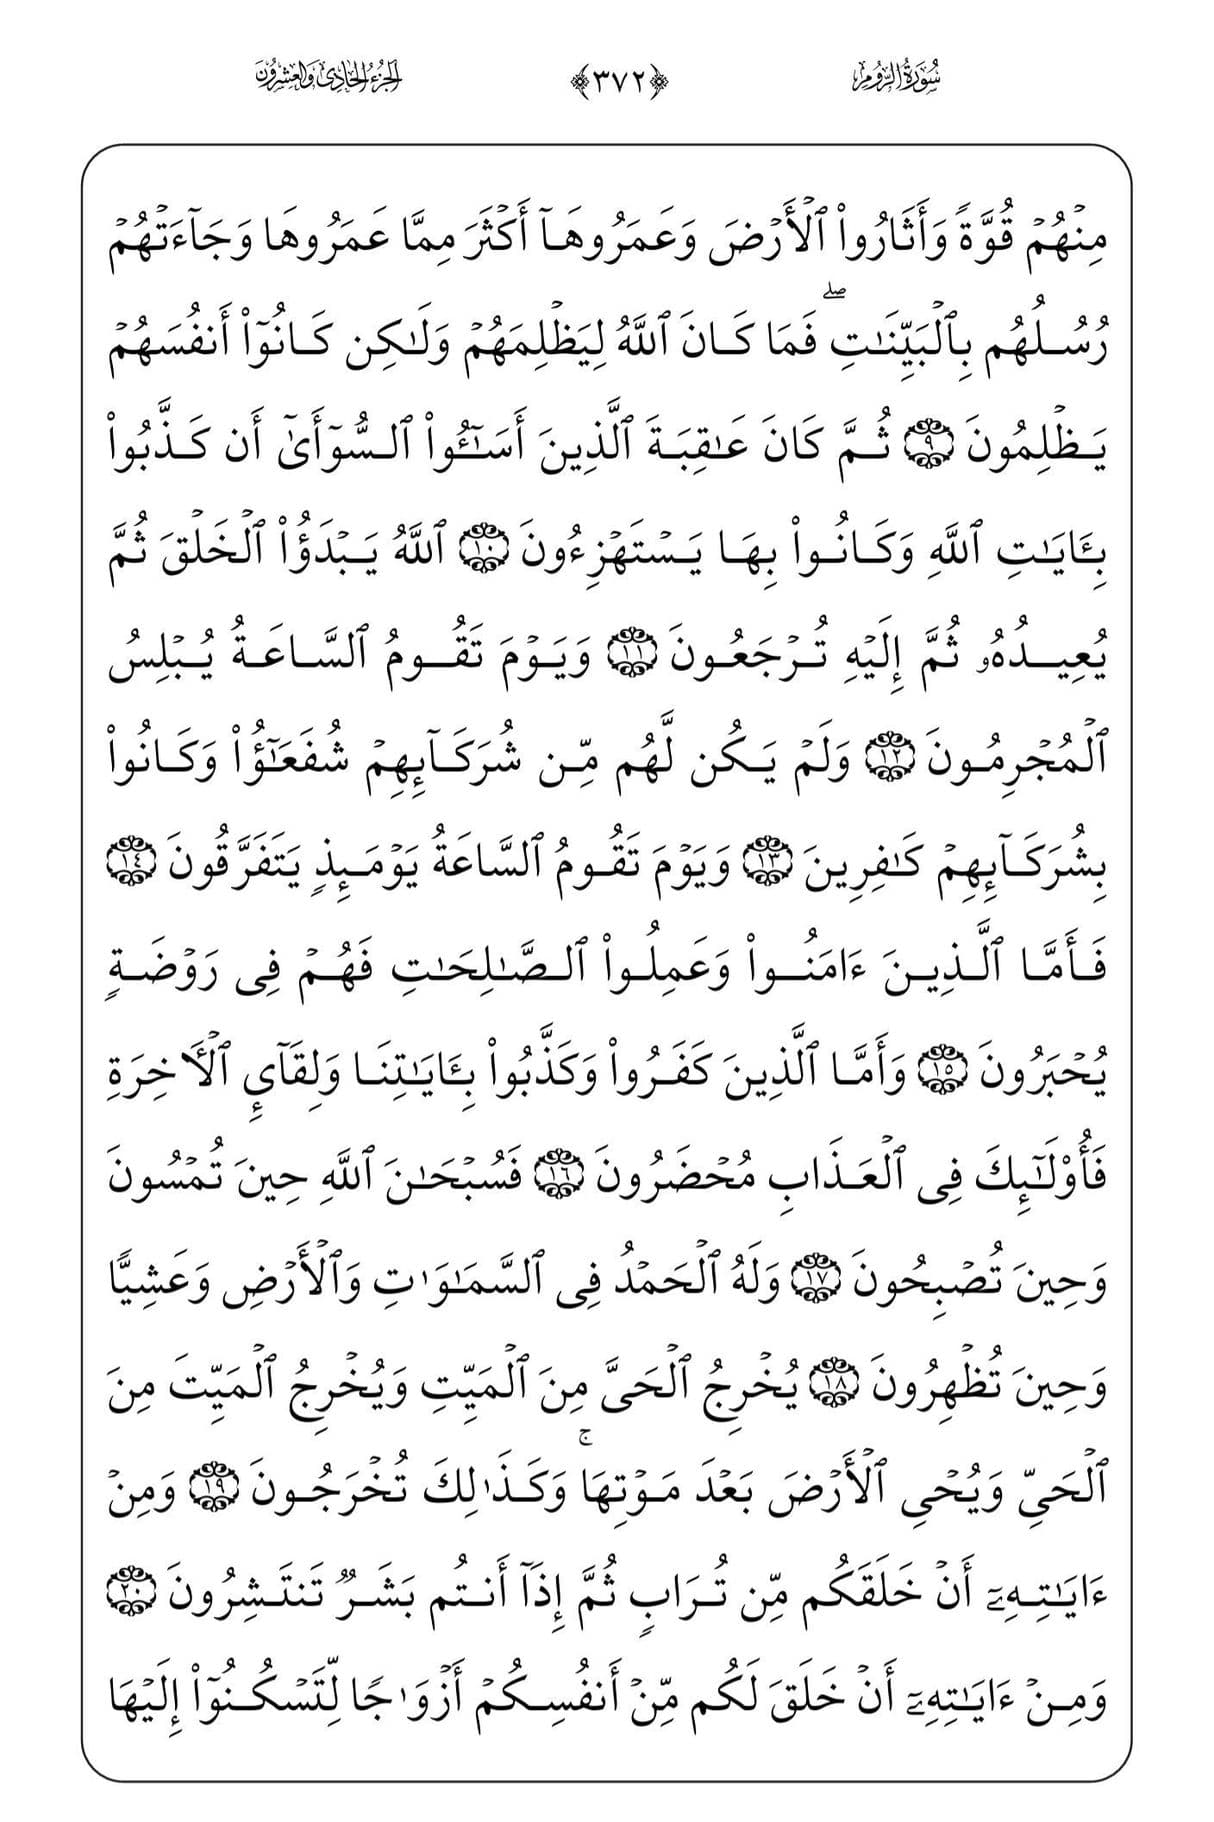 سُورَةُ الرُّومِ ﴿٣٧٢﴾ الجُزْءُ الحَادِي وَالعِشْرُونَ
مِنۡهُمۡ قُوَّةٗ وَأَثَارُواْ ٱلۡأَرۡضَ وَعَمَرُوهَآ أَكۡثَرَ مِمَّا عَمَرُوهَا وَجَآءَتۡهُمۡ
رُسُلُهُم بِٱلۡبَيِّنَٰتِۖ فَمَا كَانَ ٱللَّهُ لِيَظۡلِمَهُمۡ وَلَٰكِن كَانُوٓاْ أَنفُسَهُمۡ
يَظۡلِمُونَ ٩ ثُمَّ كَانَ عَٰقِبَةَ ٱلَّذِينَ أَسَٰٓـُٔواْ ٱلسُّوٓأَىٰٓ أَن كَذَّبُواْ
بِـَٔايَٰتِ ٱللَّهِ وَكَانُواْ بِهَا يَسۡتَهۡزِءُونَ ١٠ ٱللَّهُ يَبۡدَؤُاْ ٱلۡخَلۡقَ ثُمَّ
يُعِيدُهُۥ ثُمَّ إِلَيۡهِ تُرۡجَعُونَ ١١ وَيَوۡمَ تَقُومُ ٱلسَّاعَةُ يُبۡلِسُ
ٱلۡمُجۡرِمُونَ ١٢ وَلَمۡ يَكُن لَّهُم مِّن شُرَكَآئِهِمۡ شُفَعَٰٓؤُاْ وَكَانُواْ
بِشُرَكَآئِهِمۡ كَٰفِرِينَ ١٣ وَيَوۡمَ تَقُومُ ٱلسَّاعَةُ يَوۡمَئِذٖ يَتَفَرَّقُونَ ١٤
فَأَمَّا ٱلَّذِينَ ءَامَنُواْ وَعَمِلُواْ ٱلصَّٰلِحَٰتِ فَهُمۡ فِي رَوۡضَةٖ
يُحۡبَرُونَ ١٥ وَأَمَّا ٱلَّذِينَ كَفَرُواْ وَكَذَّبُواْ بِـَٔايَٰتِنَا وَلِقَآيِٕ ٱلۡأٓخِرَةِ
فَأُوْلَٰٓئِكَ فِي ٱلۡعَذَابِ مُحۡضَرُونَ ١٦ فَسُبۡحَٰنَ ٱللَّهِ حِينَ تُمۡسُونَ
وَحِينَ تُصۡبِحُونَ ١٧ وَلَهُ ٱلۡحَمۡدُ فِي ٱلسَّمَٰوَٰتِ وَٱلۡأَرۡضِ وَعَشِيّٗا
وَحِينَ تُظۡهِرُونَ ١٨ يُخۡرِجُ ٱلۡحَيَّ مِنَ ٱلۡمَيِّتِ وَيُخۡرِجُ ٱلۡمَيِّتَ مِنَ
ٱلۡحَيِّ وَيُحۡيِ ٱلۡأَرۡضَ بَعۡدَ مَوۡتِهَاۚ وَكَذَٰلِكَ تُخۡرَجُونَ ١٩ وَمِنۡ
ءَايَٰتِهِۦٓ أَنۡ خَلَقَكُم مِّن تُرَابٖ ثُمَّ إِذَآ أَنتُم بَشَرٞ تَنتَشِرُونَ ٢٠
وَمِنۡ ءَايَٰتِهِۦٓ أَنۡ خَلَقَ لَكُم مِّنۡ أَنفُسِكُمۡ أَزۡوَٰجٗا لِّتَسۡكُنُوٓاْ إِلَيۡهَا